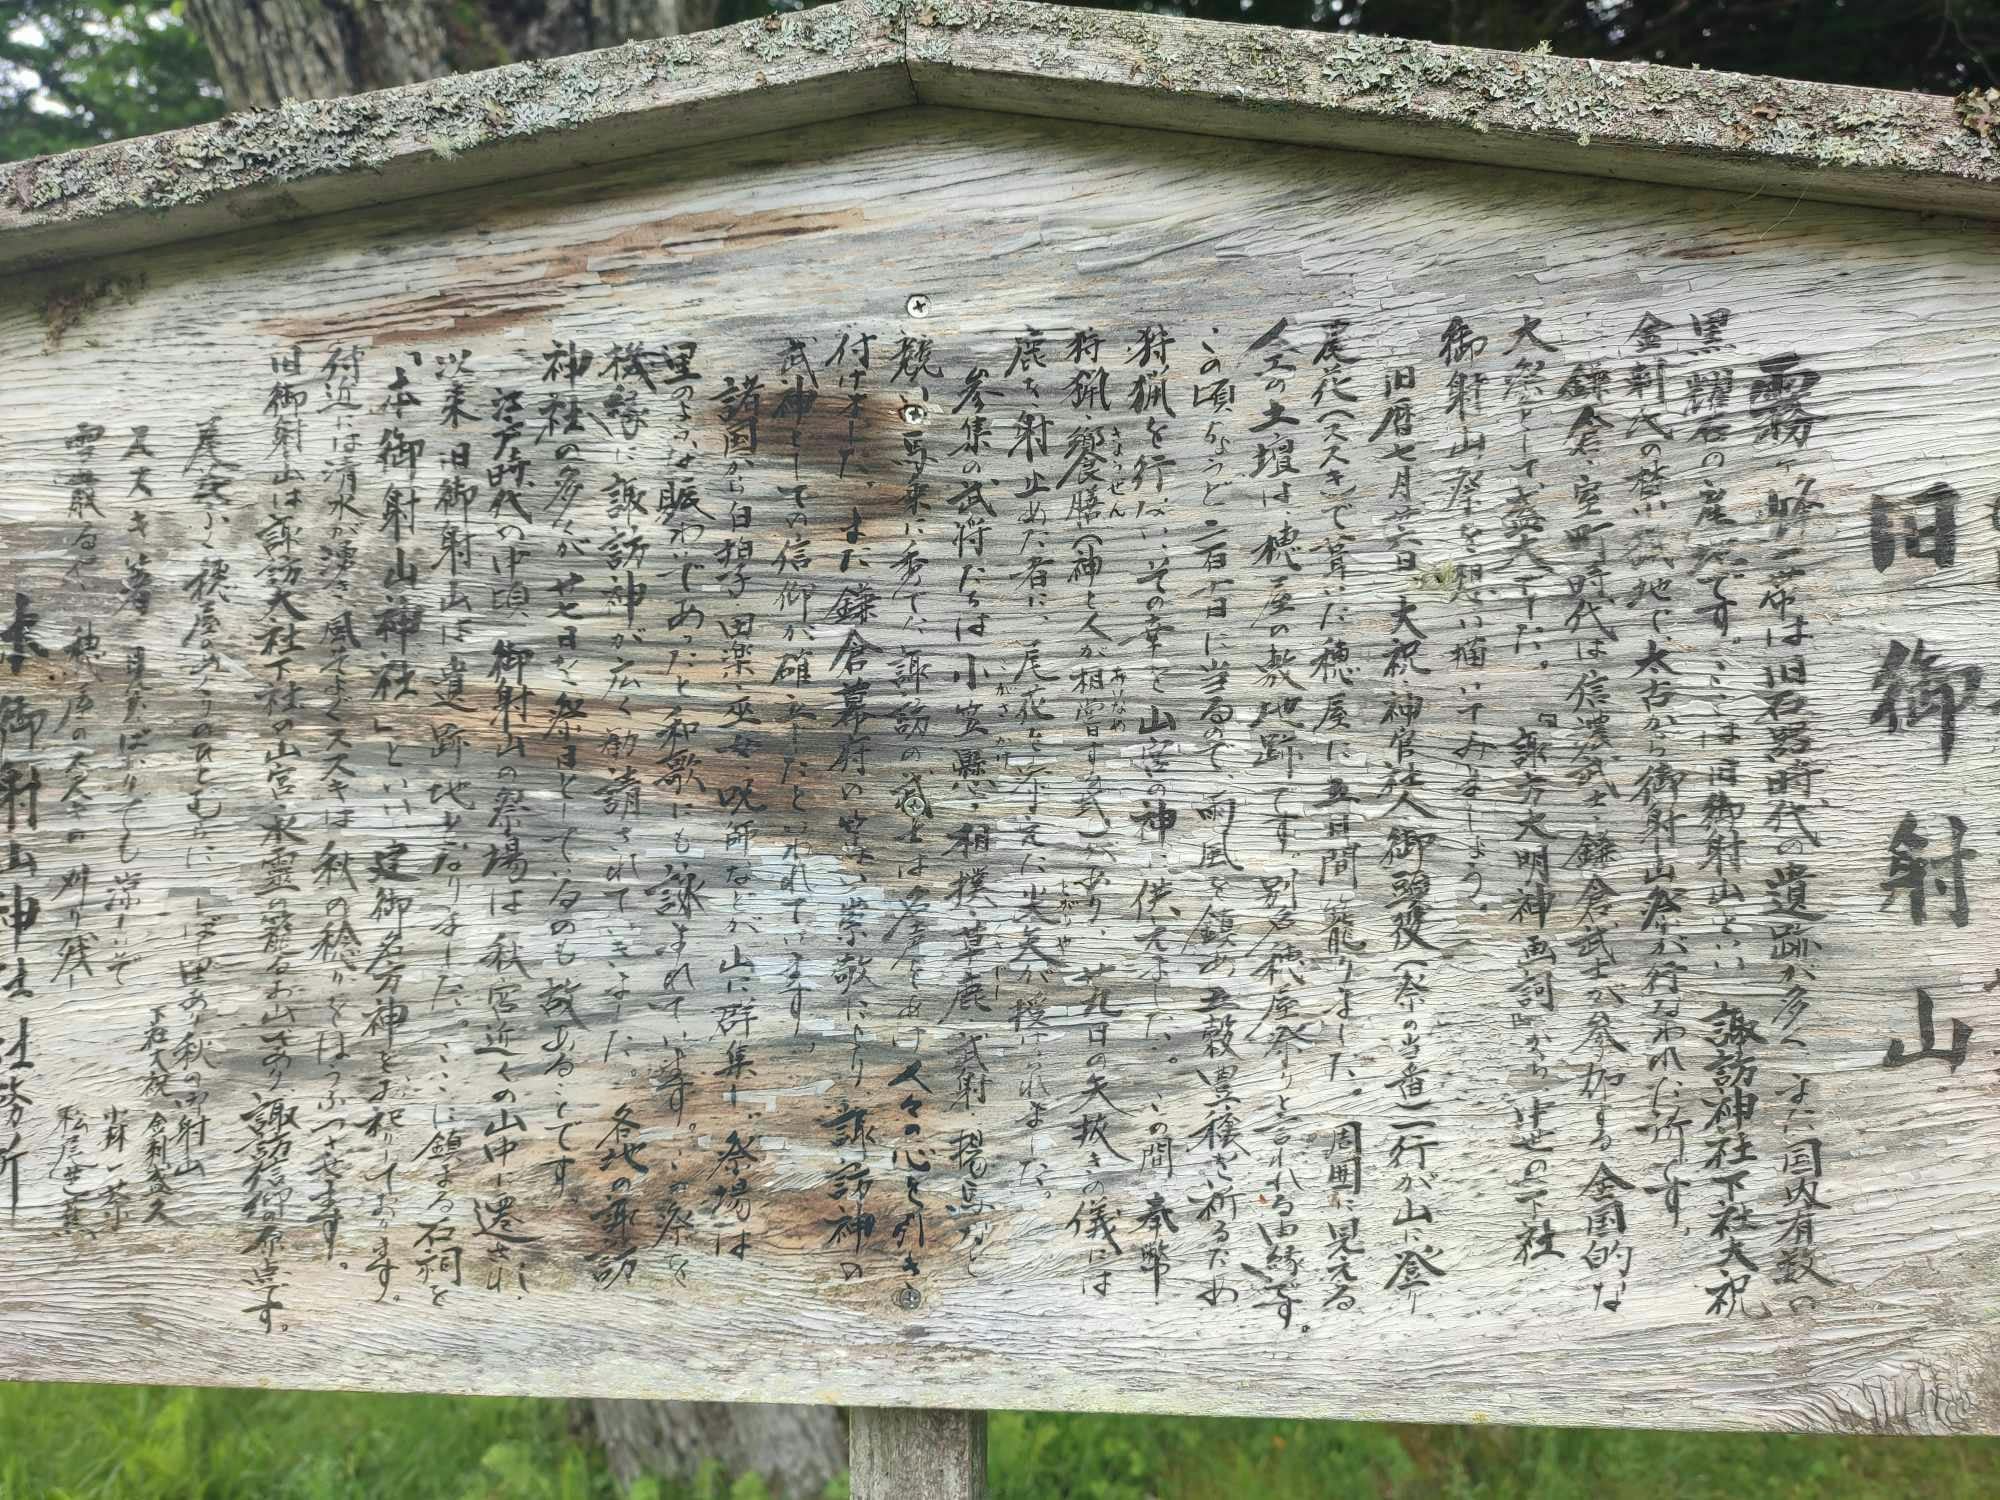 旧御射山
霧ヶ峰一帯は旧石器時代の遺跡が多く、まに国内有数の
黒耀石の産地です。ここは旧御射山といい、諏訪神社下社大祝
金刺氏の禁猟地で、太古から御射山祭が行なわれた所です。
鎌倉・室町時代は信濃武士・鎌倉武士が参加する全国的な
大祭として、盛大でした。『諏方大明神画詞』から、中世の下社
御射山祭を想い描いてみましょう。
旧暦七月廿六日、大祝・神官・社人・御頭役(祭の当番)一行が山に登り
尾花(ススキ)で葺いた穂屋に五日間籠りました。周囲に見える
人工の土壇は、穂屋の敷地跡です。別名穂屋祭りと言われる由縁です。
この頃ちょうど二百十日に当るので、雨風を鎮め、五穀豊穣を祈るため
狩猟を行ない、その幸を山宮の神に供えました。この間、奉幣・
狩猟・饗膳(神と人が相嘗する式)があり、廿九日の矢抜きの儀には
きょうぜん
あいなめ
鹿を射止めた者に、尾花を添えに尖矢が授けられました。
とがりや
参集の武将たちは小笠懸・相撲・草鹿・武射・揚馬など
こがさがけ
くさじし
競い、馬乗に秀でた諏訪の武士は名声をあげ人々の心を引き
付けました。また鎌倉幕府の篤い崇敬により、諏訪神の
武神としての信仰が確立したといわれています。
諸国から白拍子・田楽・巫女・呪師などが山に群集し、祭場は
里のような賑わいであったと和歌にも詠まれています。この祭を
機縁に諏訪神が広く勧請されていきました。各地の諏訪
神社の多くが廿七日を祭日としているのも故あることです。
江戸時代の中頃、御射山の祭場は秋宮近くの山中に遷され、
以来旧御射山は遺跡地となりました。ここに鎮まる石祠を
「本御射山神社」といい、建御名方神をお祀りしております。
付近には清水が湧き、風にそよぐススキは秋の稔りをほうふつさせます。
旧御射山は諏訪大社下社の山宮・水霊の籠るお山であり、諏訪信仰の原点です。
尾花ふく穂屋のめぐりのひとむらにしばし里あり秋の御射山
下社大祝 金刺盛久
ススキ箸見たばかりでも涼しいぞ
小林一茶
雪散るや穂屋のススキの刈り残し
松尾芭蕉
本御射山神社社務所